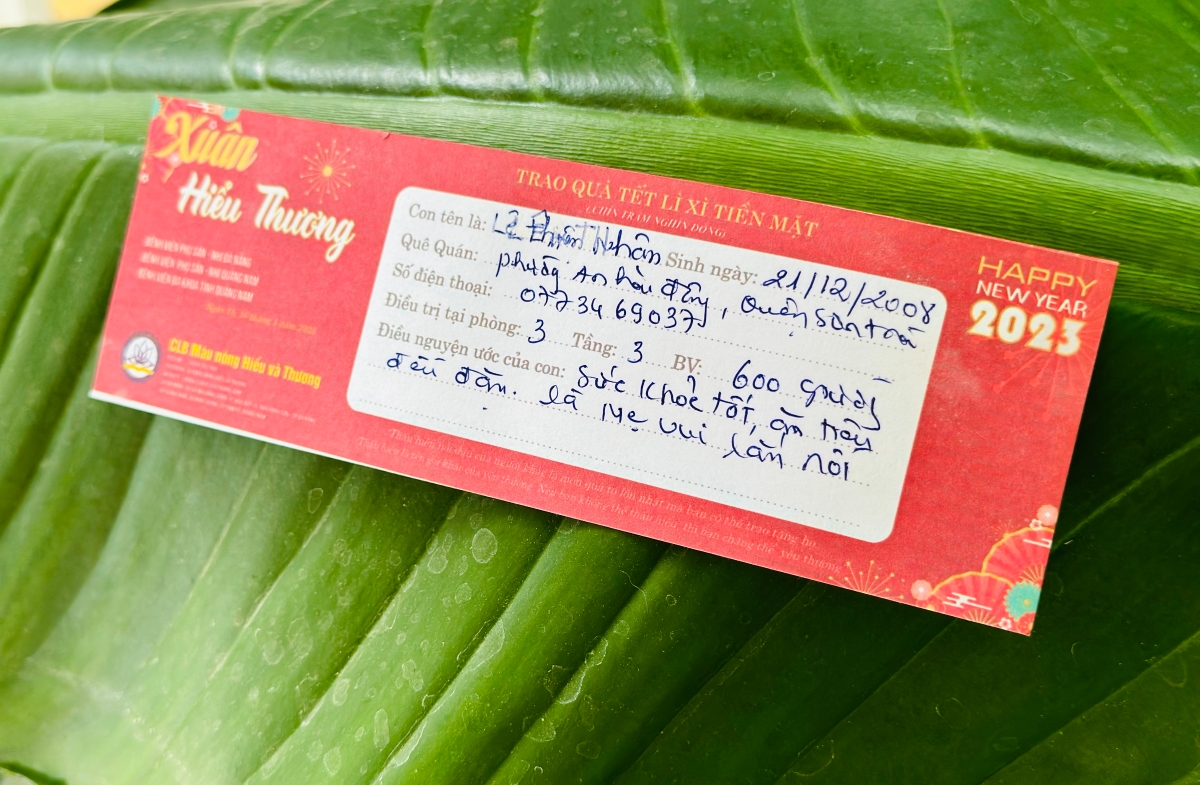 Xuân
Hiểu Thương
BỆNH VIỆN PHỤ SẢN - NHI ĐÀ NẴNG
BỆNH VIỆN PHỤ SẢN - NHI QUẢNG NAM
BỆNH VIỆN ĐA KHOA TỈNH QUẢNG NAM
CLB Máu nóng Hiểu và Thương
TRAO QUÀ TẾT LÌ XÌ TIỀN MẶT
(CHÍN TRĂM NGHÌN ĐỒNG)
Con tên là: Lê Thiện Nhân Sinh ngày: 21/12/2008
Quê Quán: phường An hòa đông, Quận Sơn trà
Số điện thoại: 0773469037
Điều trị tại phòng: 3 Tầng: 3 BV: 600 giường
Điều nguyện ước của con: Sức khỏe tốt, ăn
đều đặn. là Mẹ vui lắn nôi
HAPPY
NEW YEAR
2023
Thấu hiểu nỗi đau của người khác là món quà to lớn nhất mà bạn có thể trao tặng họ
Nếu bạn không thể thấu hiểu, thì bạn chẳng thể yêu thương